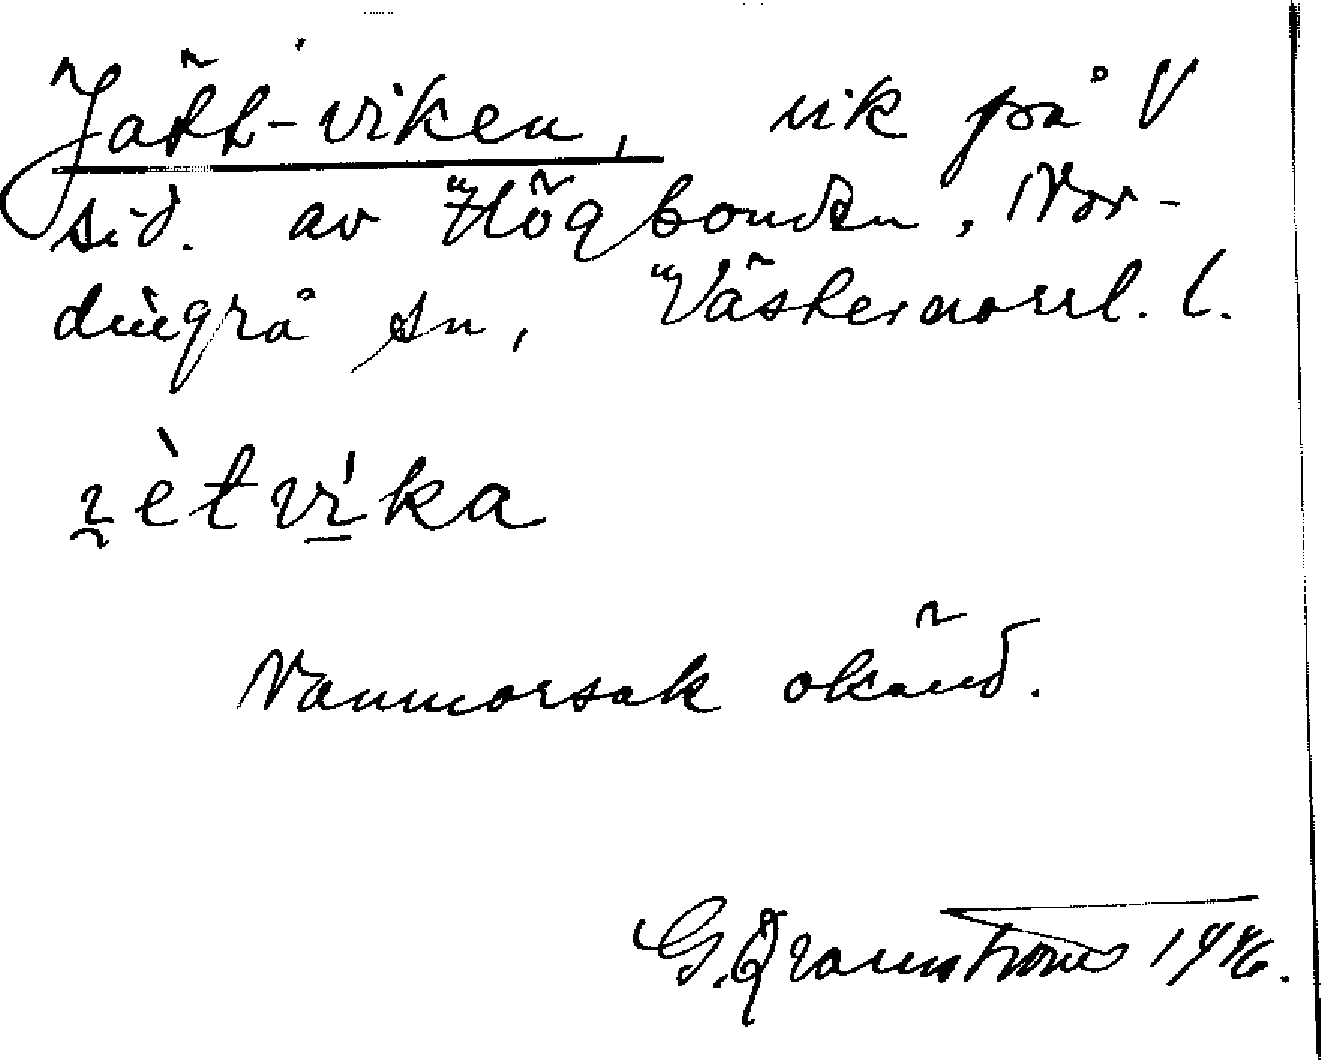 Jätt-viken, vik på V
sid. av Högbonden, Nor-
dingrå sn, Västernorrl. l.
ı̯ètvìka
Namnorsak okänd.
G. Qvarnström 1946.